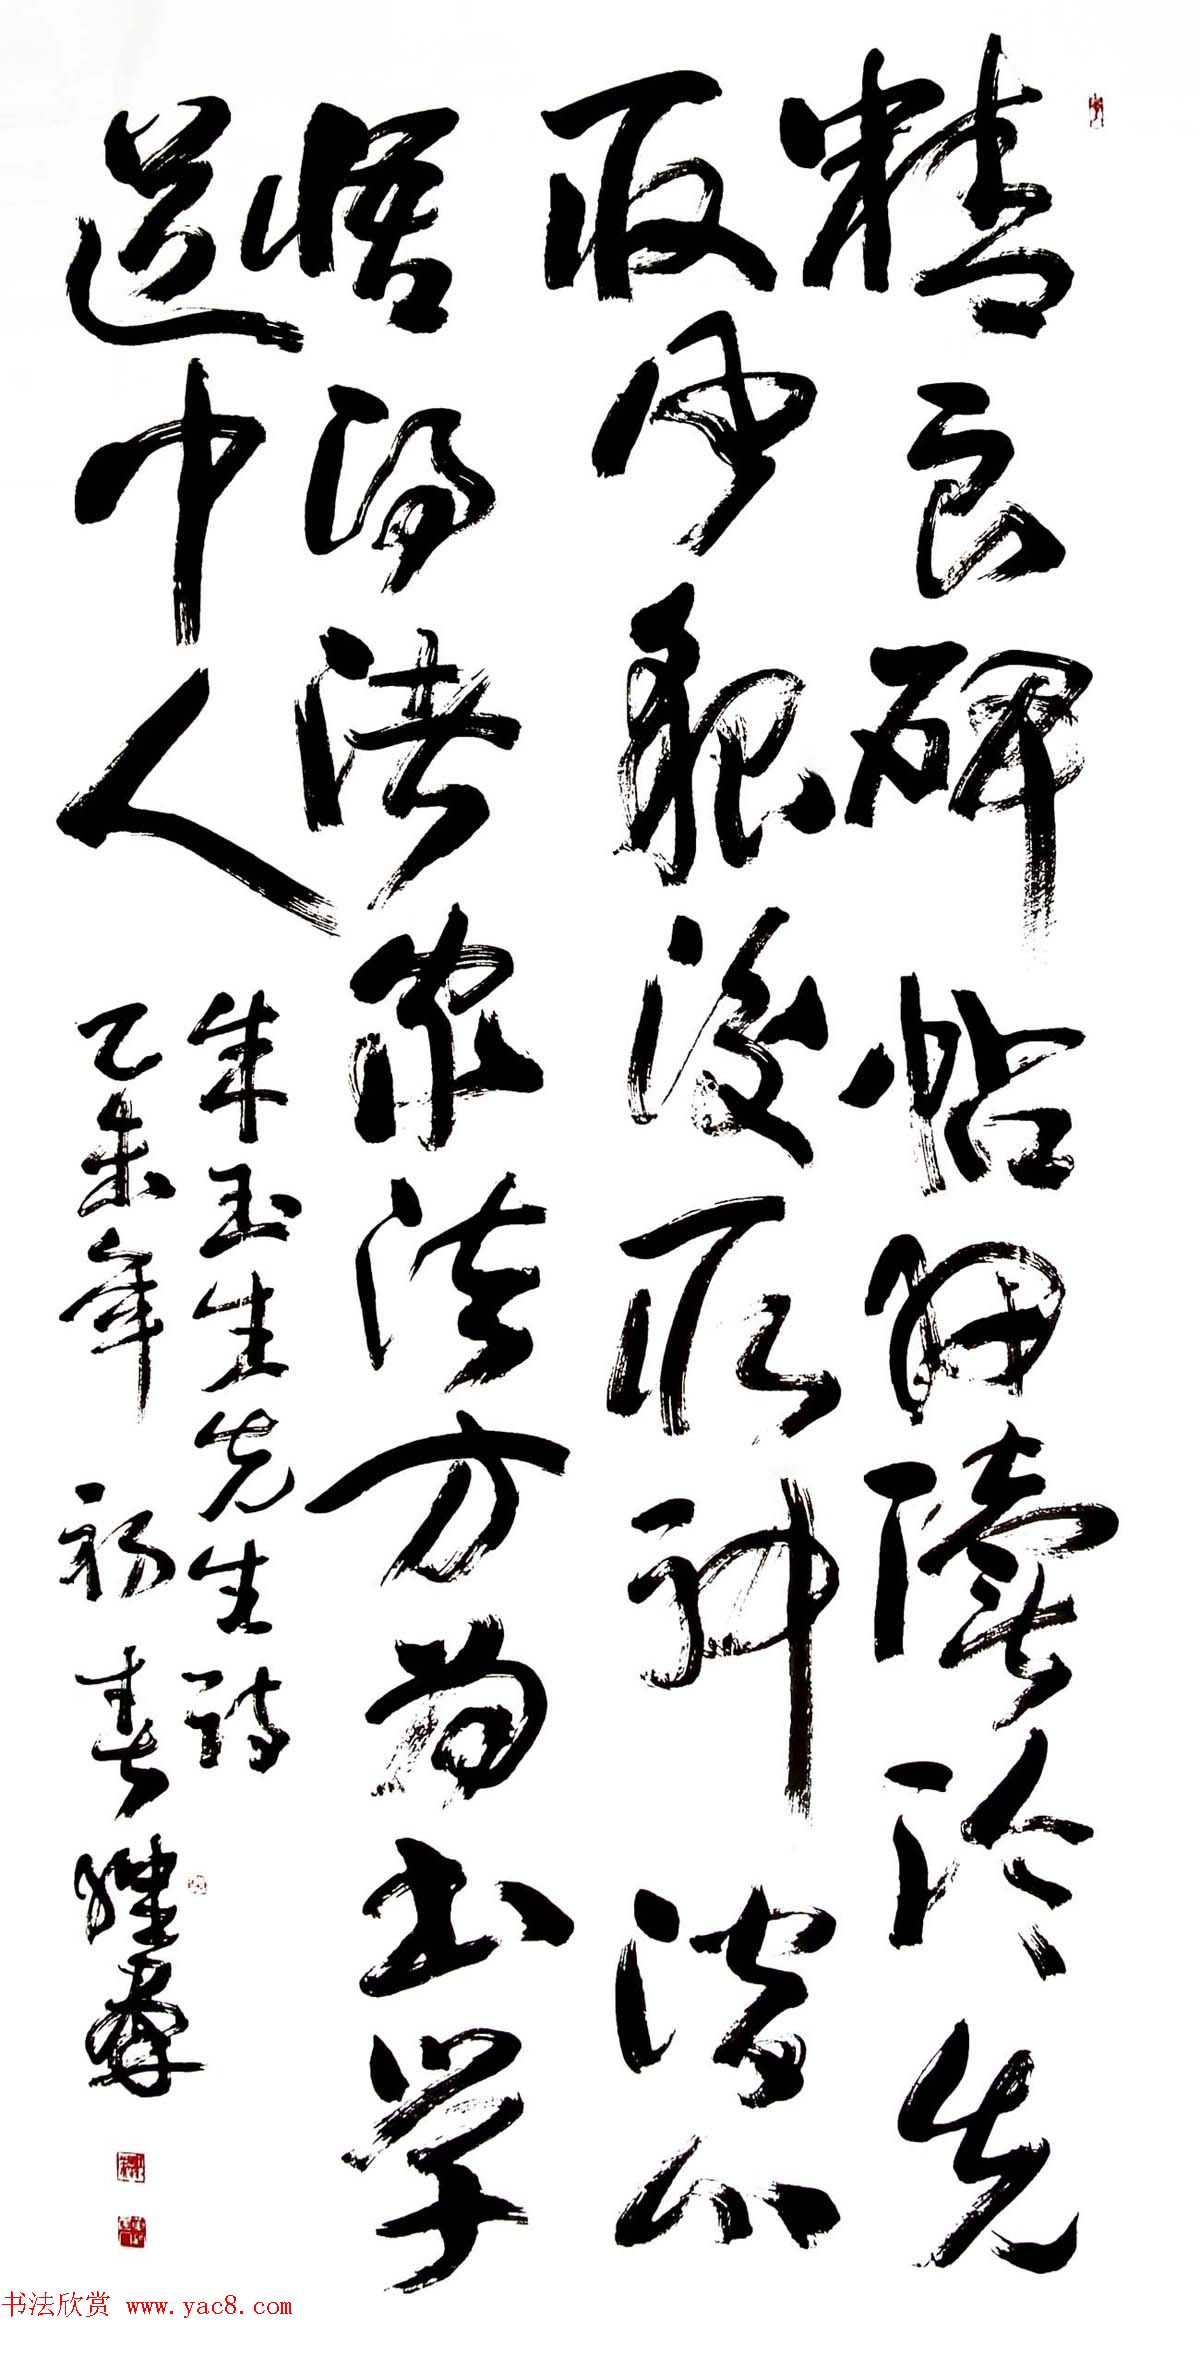 精良碑帖细读临先
取貌後取神潜心
悟得诸家法方为书学
道中人
朱玉生先生诗
乙未年初春
书法欣赏 www.yac8.com